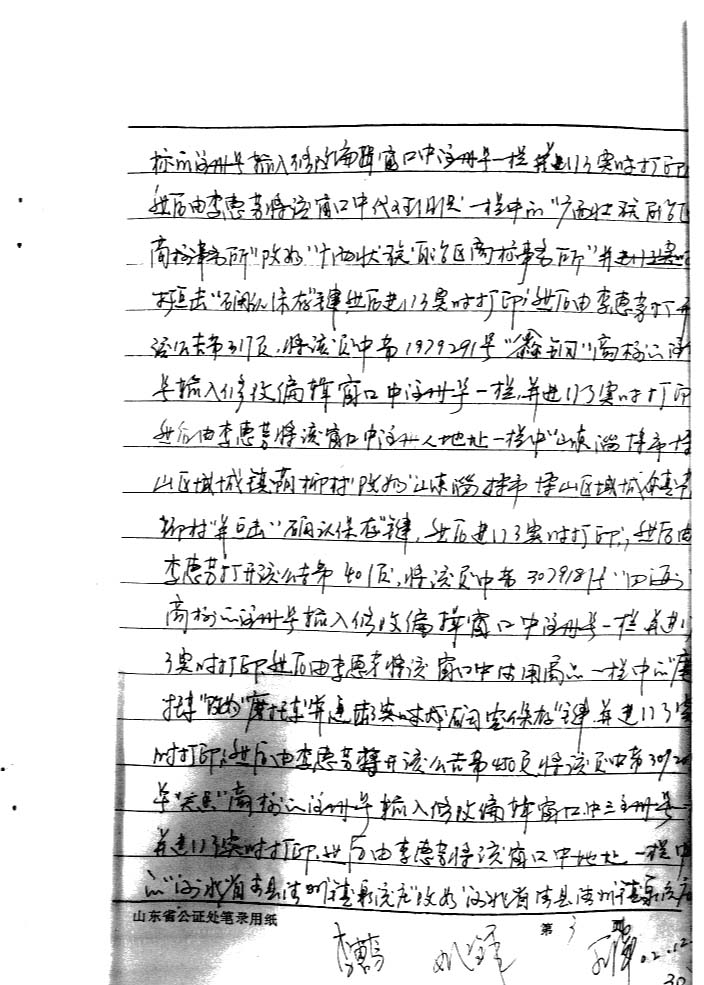 标的注册号输入修改编辑窗口中注册号一栏并进行了实时打印
然后由李惠芳将该窗口中代理组织一栏中的"广西壮族自治区
商标事务所"改为"广西状族自治区商标事务所"并进行了实时
打点击"确认保存"键然后进行了实时打印;然后由李惠芳打开
该公告第317页,将该页中第1979291号"鑫钢"商标的注册
号输入修改编辑窗口中注册号一栏,并进行了实时打印
然后由李惠芳将该窗口中注册人地址一栏中"山东淄博市博
山区域城镇荫柳村"改为"山东淄博市博山区域城镇
柳村"并点击"确认保存"键,然后进行了实时打印;然后由
李惠芳打开该公告第401页,将该页中第3079181号"四海"
商标的注册号输入修改编辑窗口中注册号一栏并进行
了实时打印然后由李惠芳将该窗口中使用商品一栏中的"摩
托车"改为"摩托车"并点击"确定保存"键并进行了实
时打印;然后由李惠芳打开该公告第480页,将该页中第30920
号商标的注册号输入修改编辑窗口中注册号一
并进行了实时打印,然后由李惠芳将该窗口中地址一栏中
的"河北省青县清州镇"改为"河北省青县清州镇
山东省公证处笔录用纸
第 3 页
02.12.30